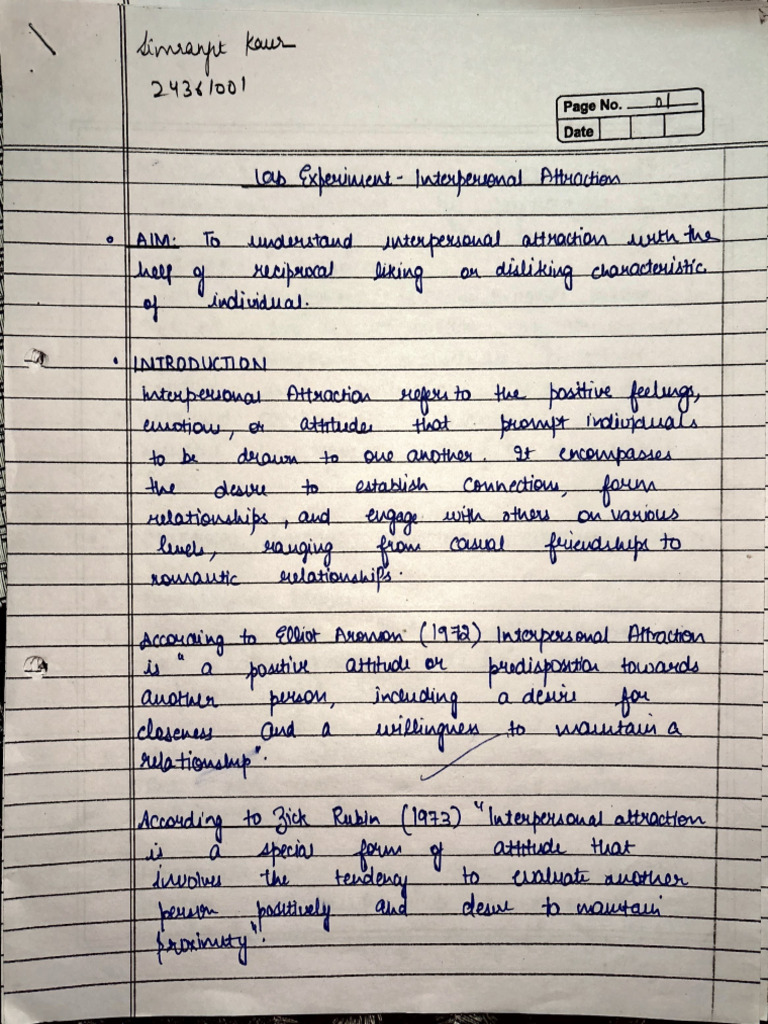 Simranjit Kaur
24361001
Page No. 01
Date
Lab Experiment - Interpersonal Attraction
AIM: To understand interpersonal attraction with the
help of reciprocal liking or disliking characteristic
of individual.
INTRODUCTION
Interpersonal Attraction refers to the positive feelings,
emotions, or attitudes that prompt individuals
to be drawn to one another. It encompasses
the desire to establish connections, form
relationships, and engage with others on various
levels, ranging from casual friendships to
romantic relationships.
According to Elliot Aronson (1972) Interpersonal Attraction
is "a positive attitude or predisposition towards
another person, including a desire for
closeness and a willingness to maintain a
relationship".
According to Zick Rubin (1973) "Interpersonal attraction
is a special form of attitude that
involves the tendency to evaluate another
person positively and desire to maintain
proximity".